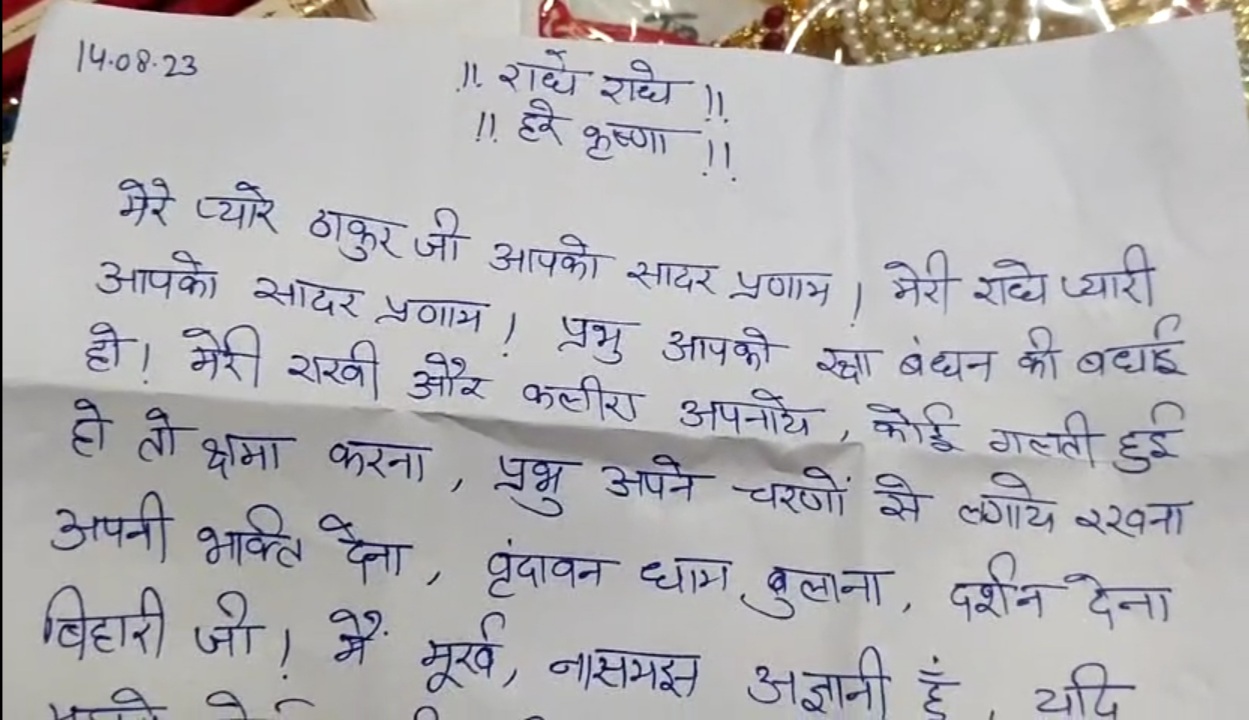 14.08.23
॥ राधे राधे ॥
॥ हरे कृष्णा ॥
मेरे प्यारे ठाकुर जी आपको सादर प्रणाम । मेरी राधे प्यारी
आपको सादर प्रणाम ! प्रभु आपको रक्षा बंधन की बधाई
हो ! मेरी राखी और कलीरा अपनाये , कोई गलती हुई
हो तो क्षमा करना , प्रभु अपने चरणों से लगाये रखना
अपनी भक्ति देना , वृंदावन धाम बुलाना , दर्शन देना
बिहारी जी ! मैं मूर्ख, नासमझ अज्ञानी हूं , यदि